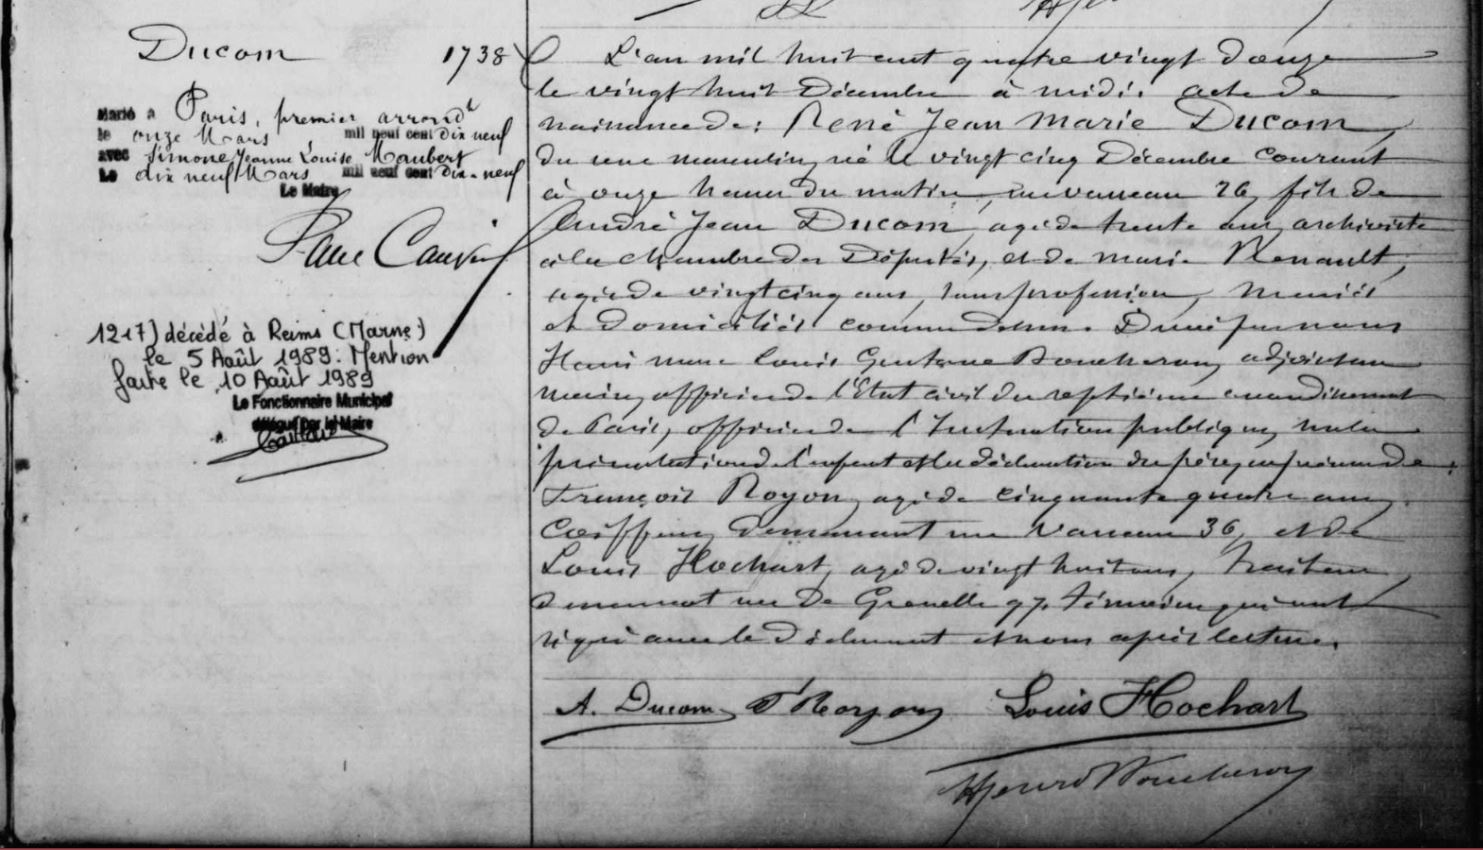 Ducom 1738
Marié à Paris, premier arrondt
le onze Mars mil neuf cent dix neuf
avec Simone Jeanne Louise Maubert
Le dix neuf Mars mil neuf cent Dix-neuf
Le Maire
1217) décédé à Reims (Marne)
le 5 Août 1989. Mention
faite le 10 Août 1989
Le Fonctionnaire Municipal
délégué par le Maire
L'an mil huit cent quatre vingt douze
le vingt huit Décembre à midi. acte de
naissance de: René Jean Marie Ducom,
du sexe masculin, né le vingt cinq Décembre courant
à onze heures du matin, rue vaneau 26, fils de
André Jean Ducom, agé de trente ans, archiviste
à la chambre des Députés, et de Marie Renault,
agée de vingt cinq ans, sans profession, mariés
et domiciliés comme dessus. Dressé par nous
Henri Louis Gustave Boucheron, adjoint au
maire, officier de l'Etat civil du septième arrondissement
de Paris, officier de l'Instruction publique, sur la
présentation de l'enfant et la déclaration du père, en présence de:
François Royon, agé de cinquante quatre ans,
Coiffeur, demeurant rue Vaneau 36, et de
Louis Hochart, agé de vingt huit ans, traiteur,
demeurant rue de Grenelle 97. témoins qui ont
signé avec le déclarant et nous après lecture.
A. Ducom Royon Louis Hochart
Henri Boucheron